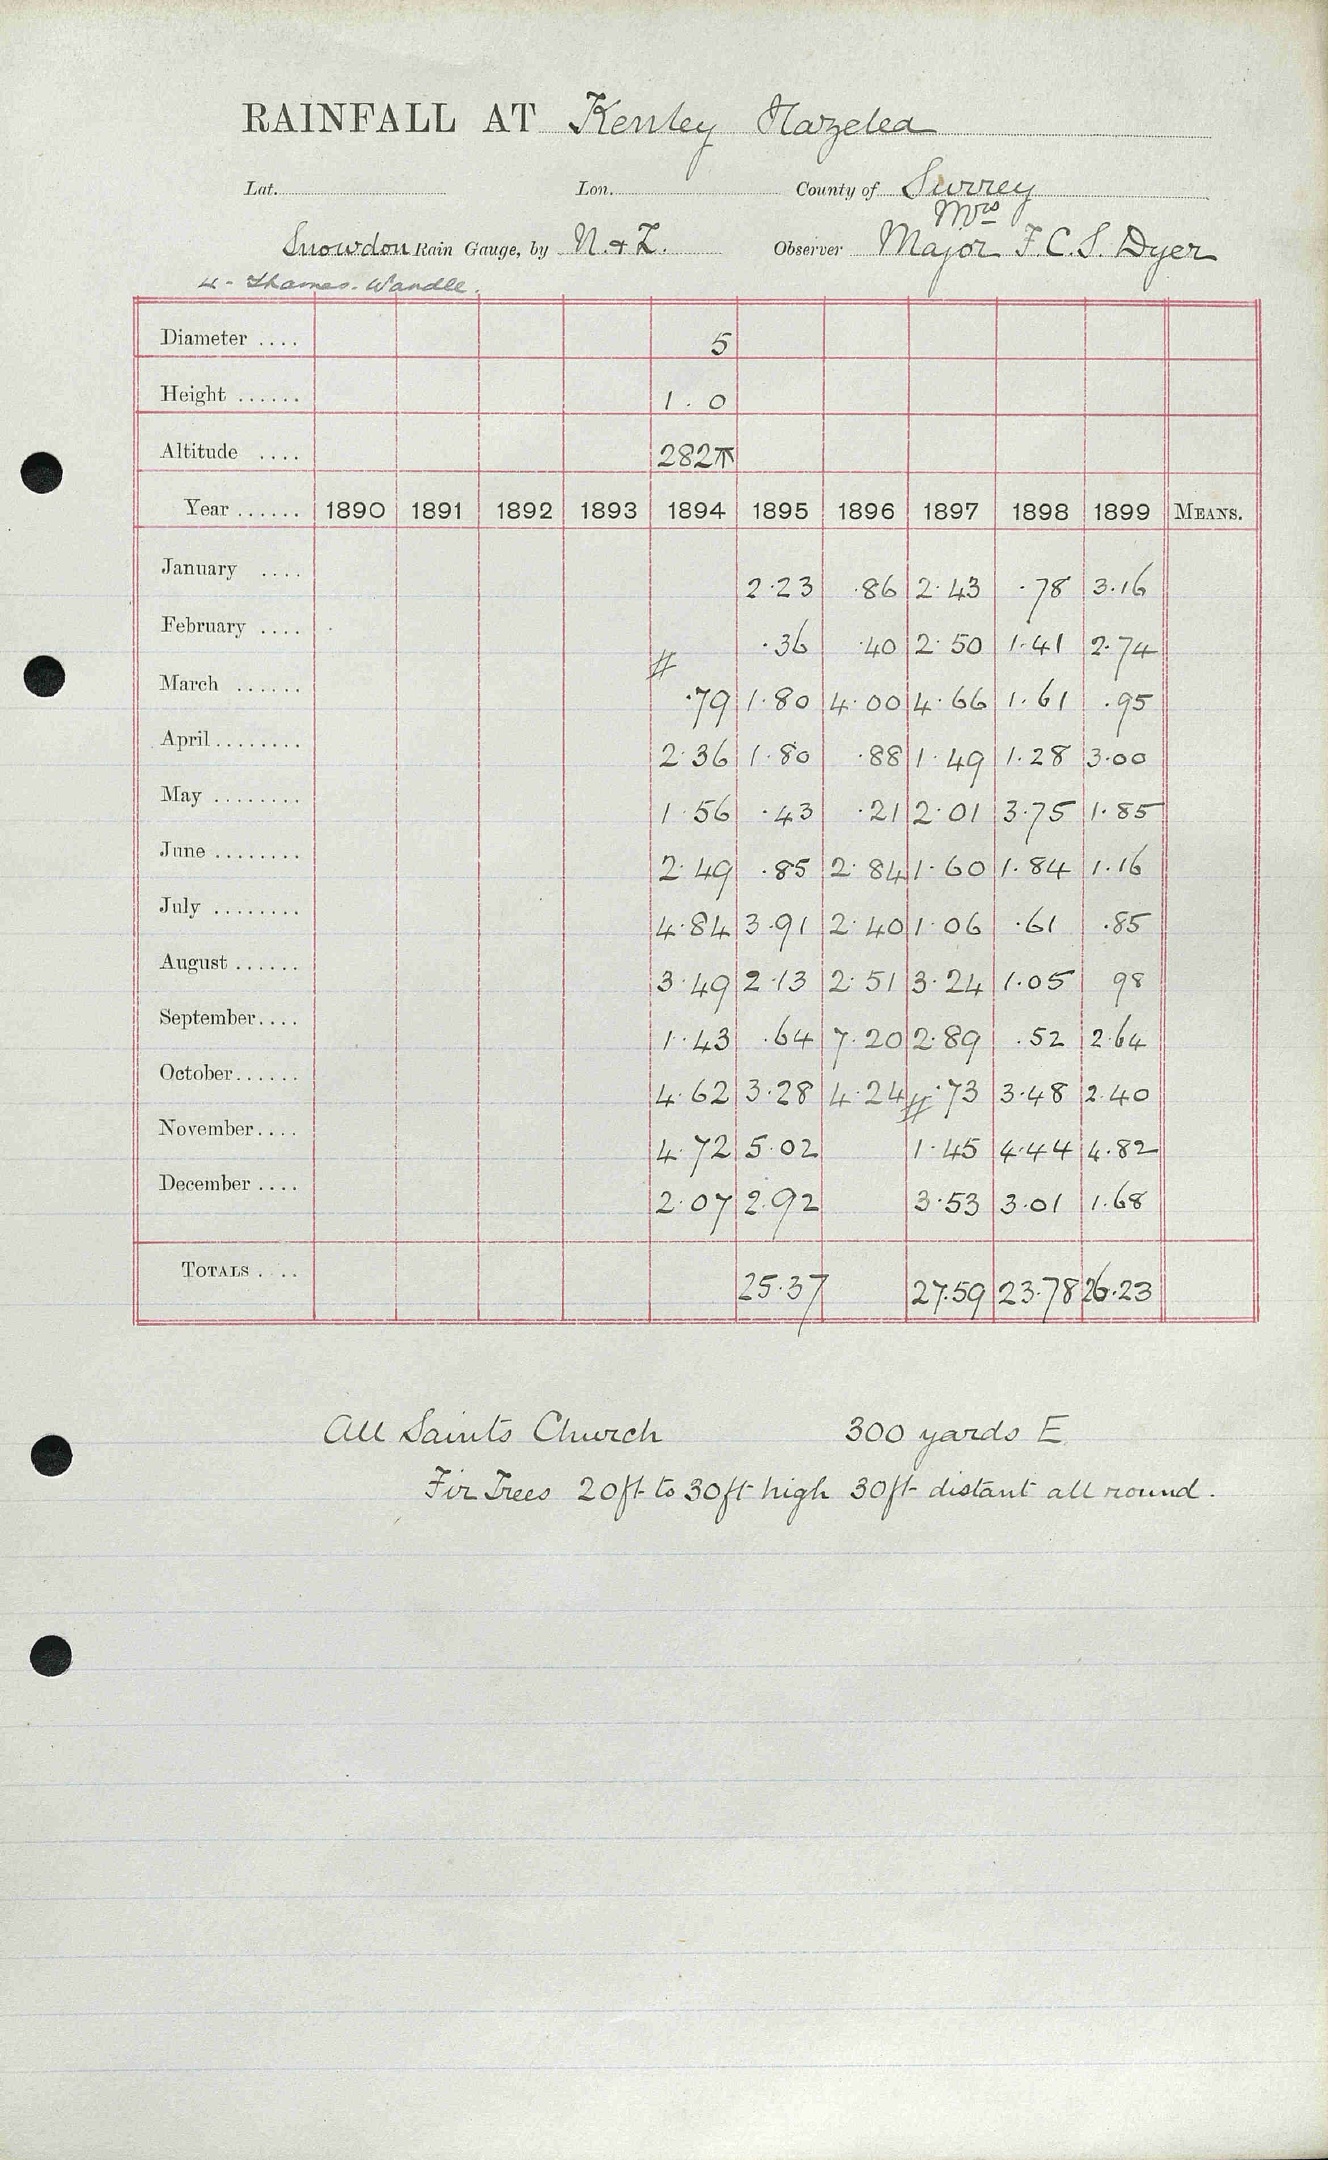 RAINFALL AT Kenley Hazelea
Lat. Lon. County of Surrey
Mrs
Snowdon Rain Gauge, by N. & Z. Observer Major F.C.S. Dyer
4 - Thames. Wandle.
Diameter .... 5
Height ...... 1 . 0
Altitude .... 282
Year ...... 1890 1891 1892 1893 1894 1895 1896 1897 1898 1899 MEANS.
January .... 2.23 .86 2.43 .78 3.16
February .... .36 .40 2.50 1.41 2.74
March ...... # .79 1.80 4.00 4.66 1.61 .95
April ........ 2.36 1.80 .88 1.49 1.28 3.00
May ........ 1 56 .43 .21 2.01 3.75 1.85
June ........ 2.49 .85 2.84 1.60 1.84 1.16
July ........ 4.84 3.91 2.40 1.06 .61 .85
August ...... 3.49 2.13 2.51 3.24 1.05 98
September.... 1.43 .64 7.20 2.89 .52 2.64
October...... 4.62 3.28 4.24 # .73 3.48 2.40
November.... 4.72 5.02 1.45 4.44 4.82
December .... 2.07 2.92 3.53 3.01 1.68
TOTALS .... 25.37 27.59 23.78 26.23
All Saints Church 300 yards E
Fir Trees 20ft to 30ft high 30ft distant all round.